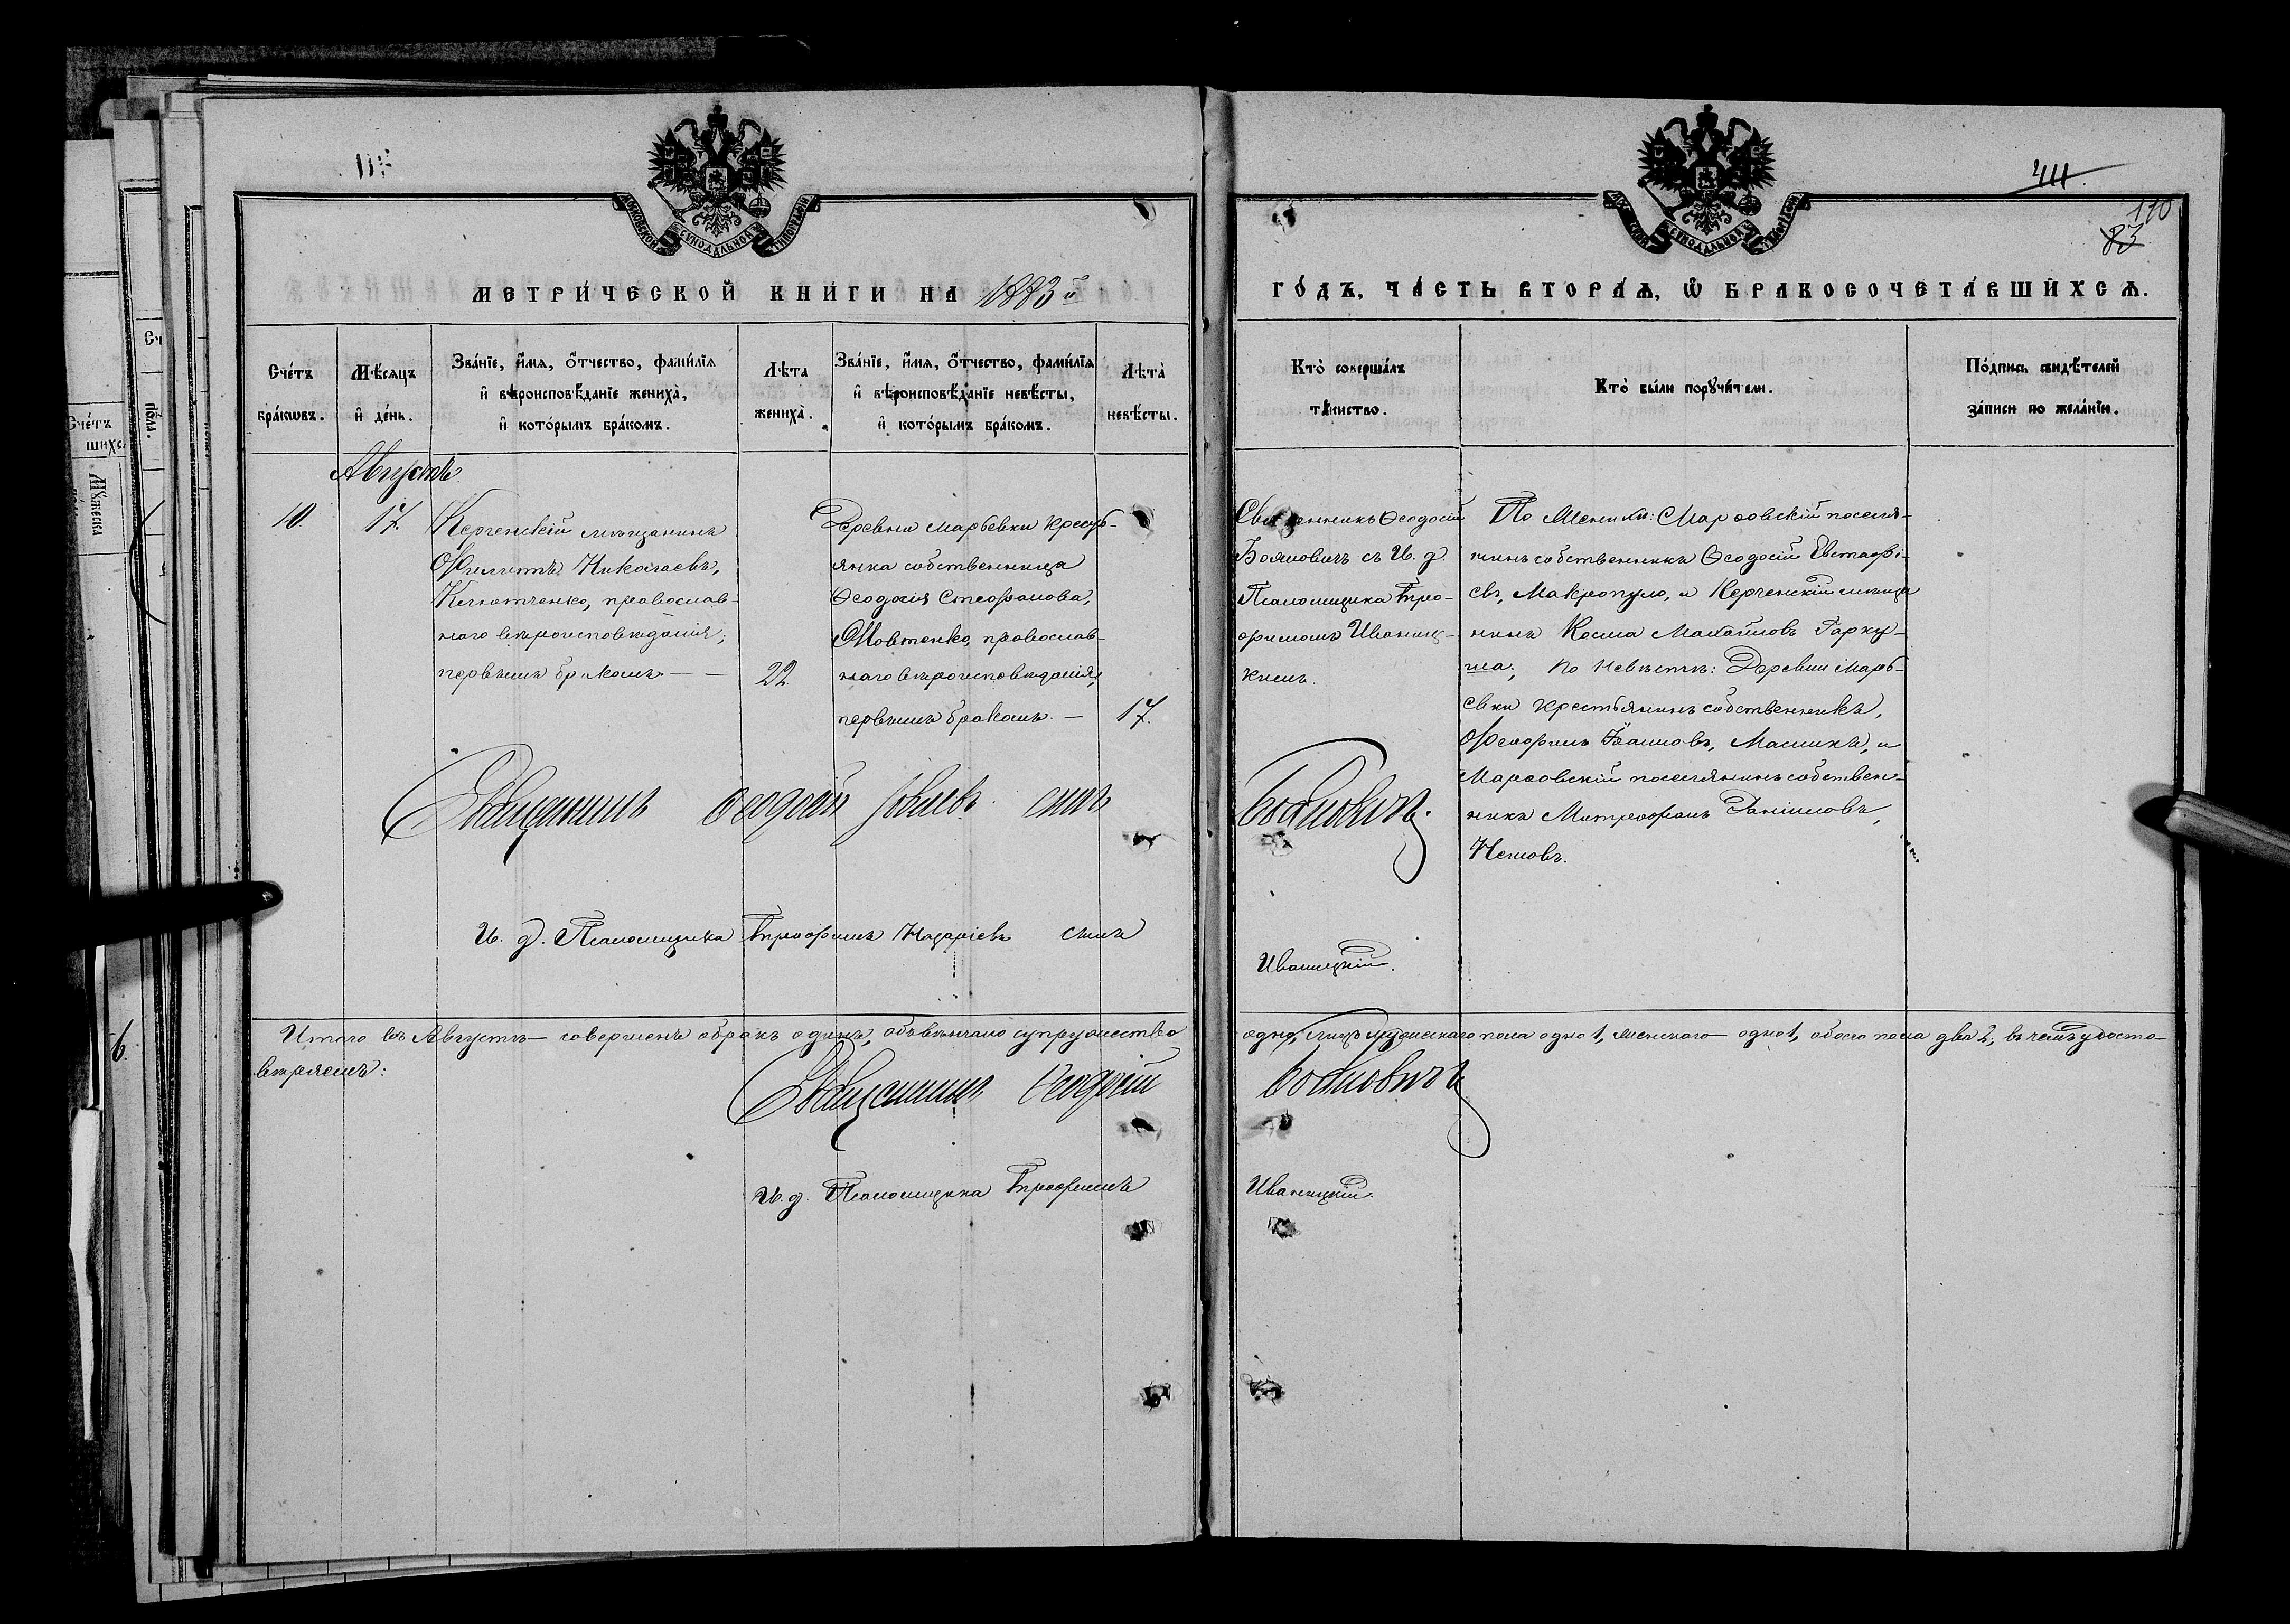 411.
110
83
МОСКОВСКОЙ СѴНОДАЛЬНОЙ ТИПОГРАФІИ
МЕТРИ́ЧЕСКОЙ КНИ́ГИ НА 1883й
ГО́ДЪ, ЧА́СТЬ ВТОРА́Ѧ, Ѡ БРАКОСОЧЕТА́ВШИХСѦ.
Сче́тъ бра́кωвъ.
Мѣ́сяцъ и҆ де́нь.
Зва́нїе, и҆́мѧ, ѻ҆́тчество, фами́лїѧ
и҆ вѣроисповѣ́данїе жениха̀,
и҆ кото́рымъ бра́комъ.
Лѣ́та
жениха̀.
Зва́нїе, и҆́мѧ, ѻ҆́тчество, фами́лїѧ
и҆ вѣроисповѣ́данїе невѣ́сты,
и҆ кото́рымъ бра́комъ.
Лѣ́та
невѣ́сты.
Кто̀ соверша́лъ
та́инство.
Кто̀ бы́ли порꙋчи́тели.
По́дпись свидѣ́телей
за́писи по жела́нїю.
Августъ.
10.
17.
Керченскій мѣщанинъ
Филиппъ Николаевъ,
православ-
наго вѣроисповѣданія;
первымъ бракомъ. — —
22.
Деревни Марьевки кресть-
янка собственница
Ѳеодосія Стефанова,
Шовтенко, православ-
наго вѣроисповѣданія,
первымъ бракомъ. —
17.
Священникъ Ѳеодосій
Бояновичъ съ И. д.
Псаломщика Трео-
фимомъ Иваниц-
кимъ.
По Женихѣ: Марѳовскій поселя-
нинъ собственникъ Ѳеодосій Евстафі-
евъ, Макропуло, и Керченскій мѣща
нинъ Косма Михайловъ Гарку-
ша; По Невѣстѣ: Деревни Марь-
евки крестьянинъ собственникъ,
Іоанновъ, и
Марѳовскій поселянинъ собствен-
никъ Митрофанъ Даниловъ,
Священникъ Ѳеодосій сынъ
Бояновичъ.
И. д. Псаломщика Трофимъ Назаріевъ сынъ
Иваницкій.
Итого въ Августѣ — совершенъ бракъ одинъ, обвѣнчано супружество
одно, лицъ мужескаго пола одно 1, женскаго — одно 1, обоего пола два 2; въ чемъ удосто-
вѣряемъ:
Священникъ Ѳеодосій
Бояновичъ
И. д. Псаломщика Трофимъ
Иваницкій.